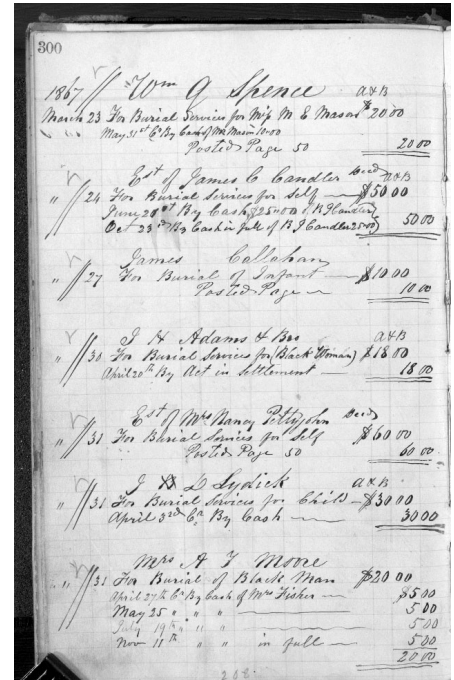 300
1867 // "Wm G Spence A & B
March 23 For Burial Services for Miss M E Mason $20 00
" " May 31st Cr By Cash of Mr Mason 10.00
Posted Page 50 20 00
Est of James C Candler Decd A&B
" // 24 For Burial Services for Self — $50 00
June 20th By Cash $25.00 of B J Candler
Oct 23rd By Cash in full of B J Candler 25.00 50 00
James Callahan
" // 27 For Burial of Infant — $10 00
Posted Page — 10 00
J H Adams & Bro A&B
" // 30 For Burial Services for (Black Woman) $18 00
April 20th By Act in Settlement — 18 00
Est of Mrs Nancy Pettyjohn Decd
" // 31 For Burial Services for Self $60 00
Posted Page 50 60 00
J D Lydick A&B
" // 31 For Burial Services for Child — $30 00
April 3rd Cr By Cash — 30 00
Mrs A T Moore
" // 31 For Burial of Black Man $20 00
April 27th Cr By Cash of Mrs Fisher — $5 00
May 25 " " " — 5 00
July 19th " " " — 5 00
Nov 11th " " in full — 5 00
20 00
208